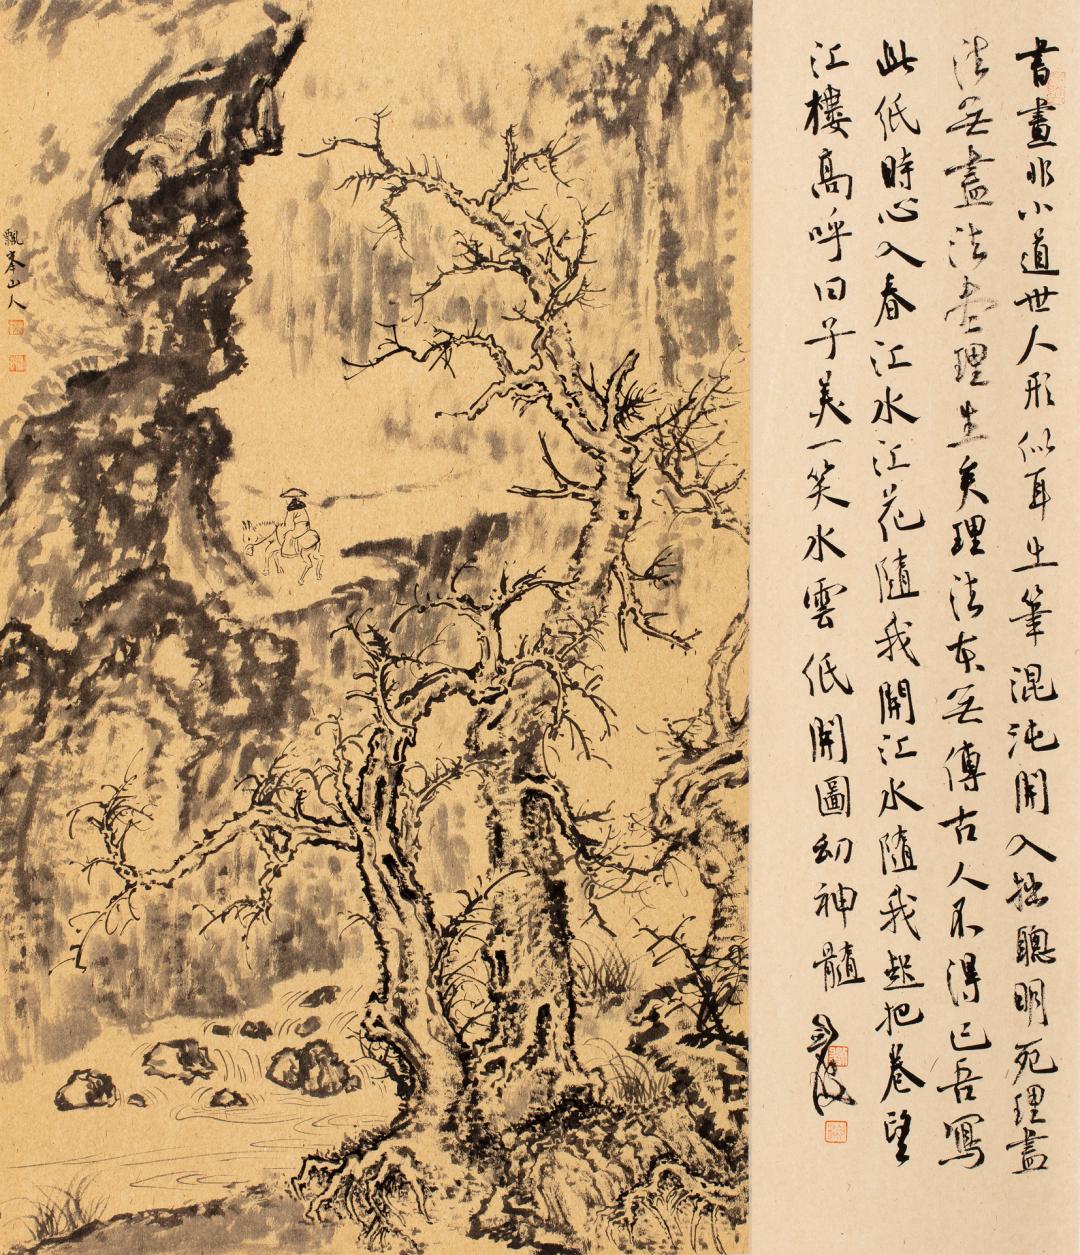 書畫非小道世人形似耳出筆混沌開入拙聰明死理盡
法无盡法盡理生矣理法本无傳古人不得已吾寫
此紙時心入春江水江花隨我開江水隨我起把卷望
江樓高呼曰子美一笑水雲低開圖幻神髓
飄峯山人